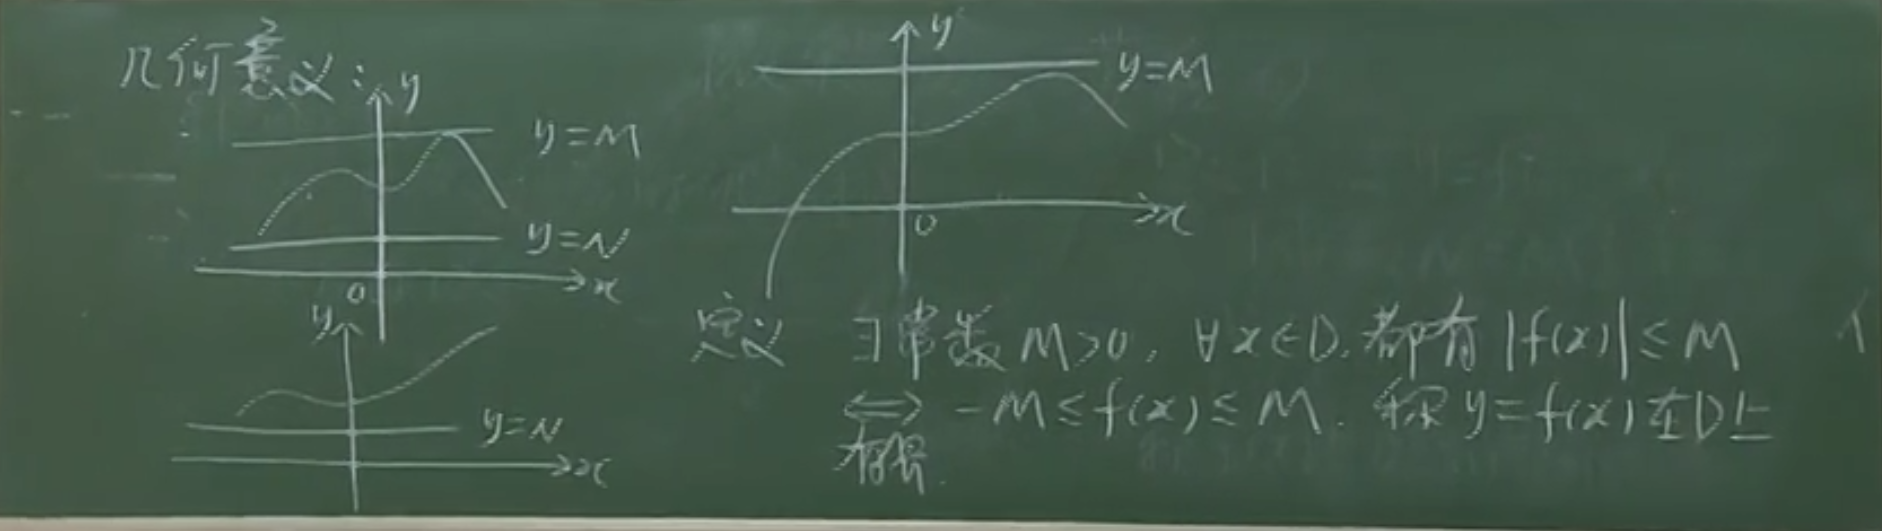 几何意义：
y
y=M
y=N
0
x
y
y=N
x
y
y=M
0
x
定义 ∃常数M>0, ∀x∈D,都有|f(x)|≤M
⇔ -M≤f(x)≤M. 称y=f(x)在D上
有界.